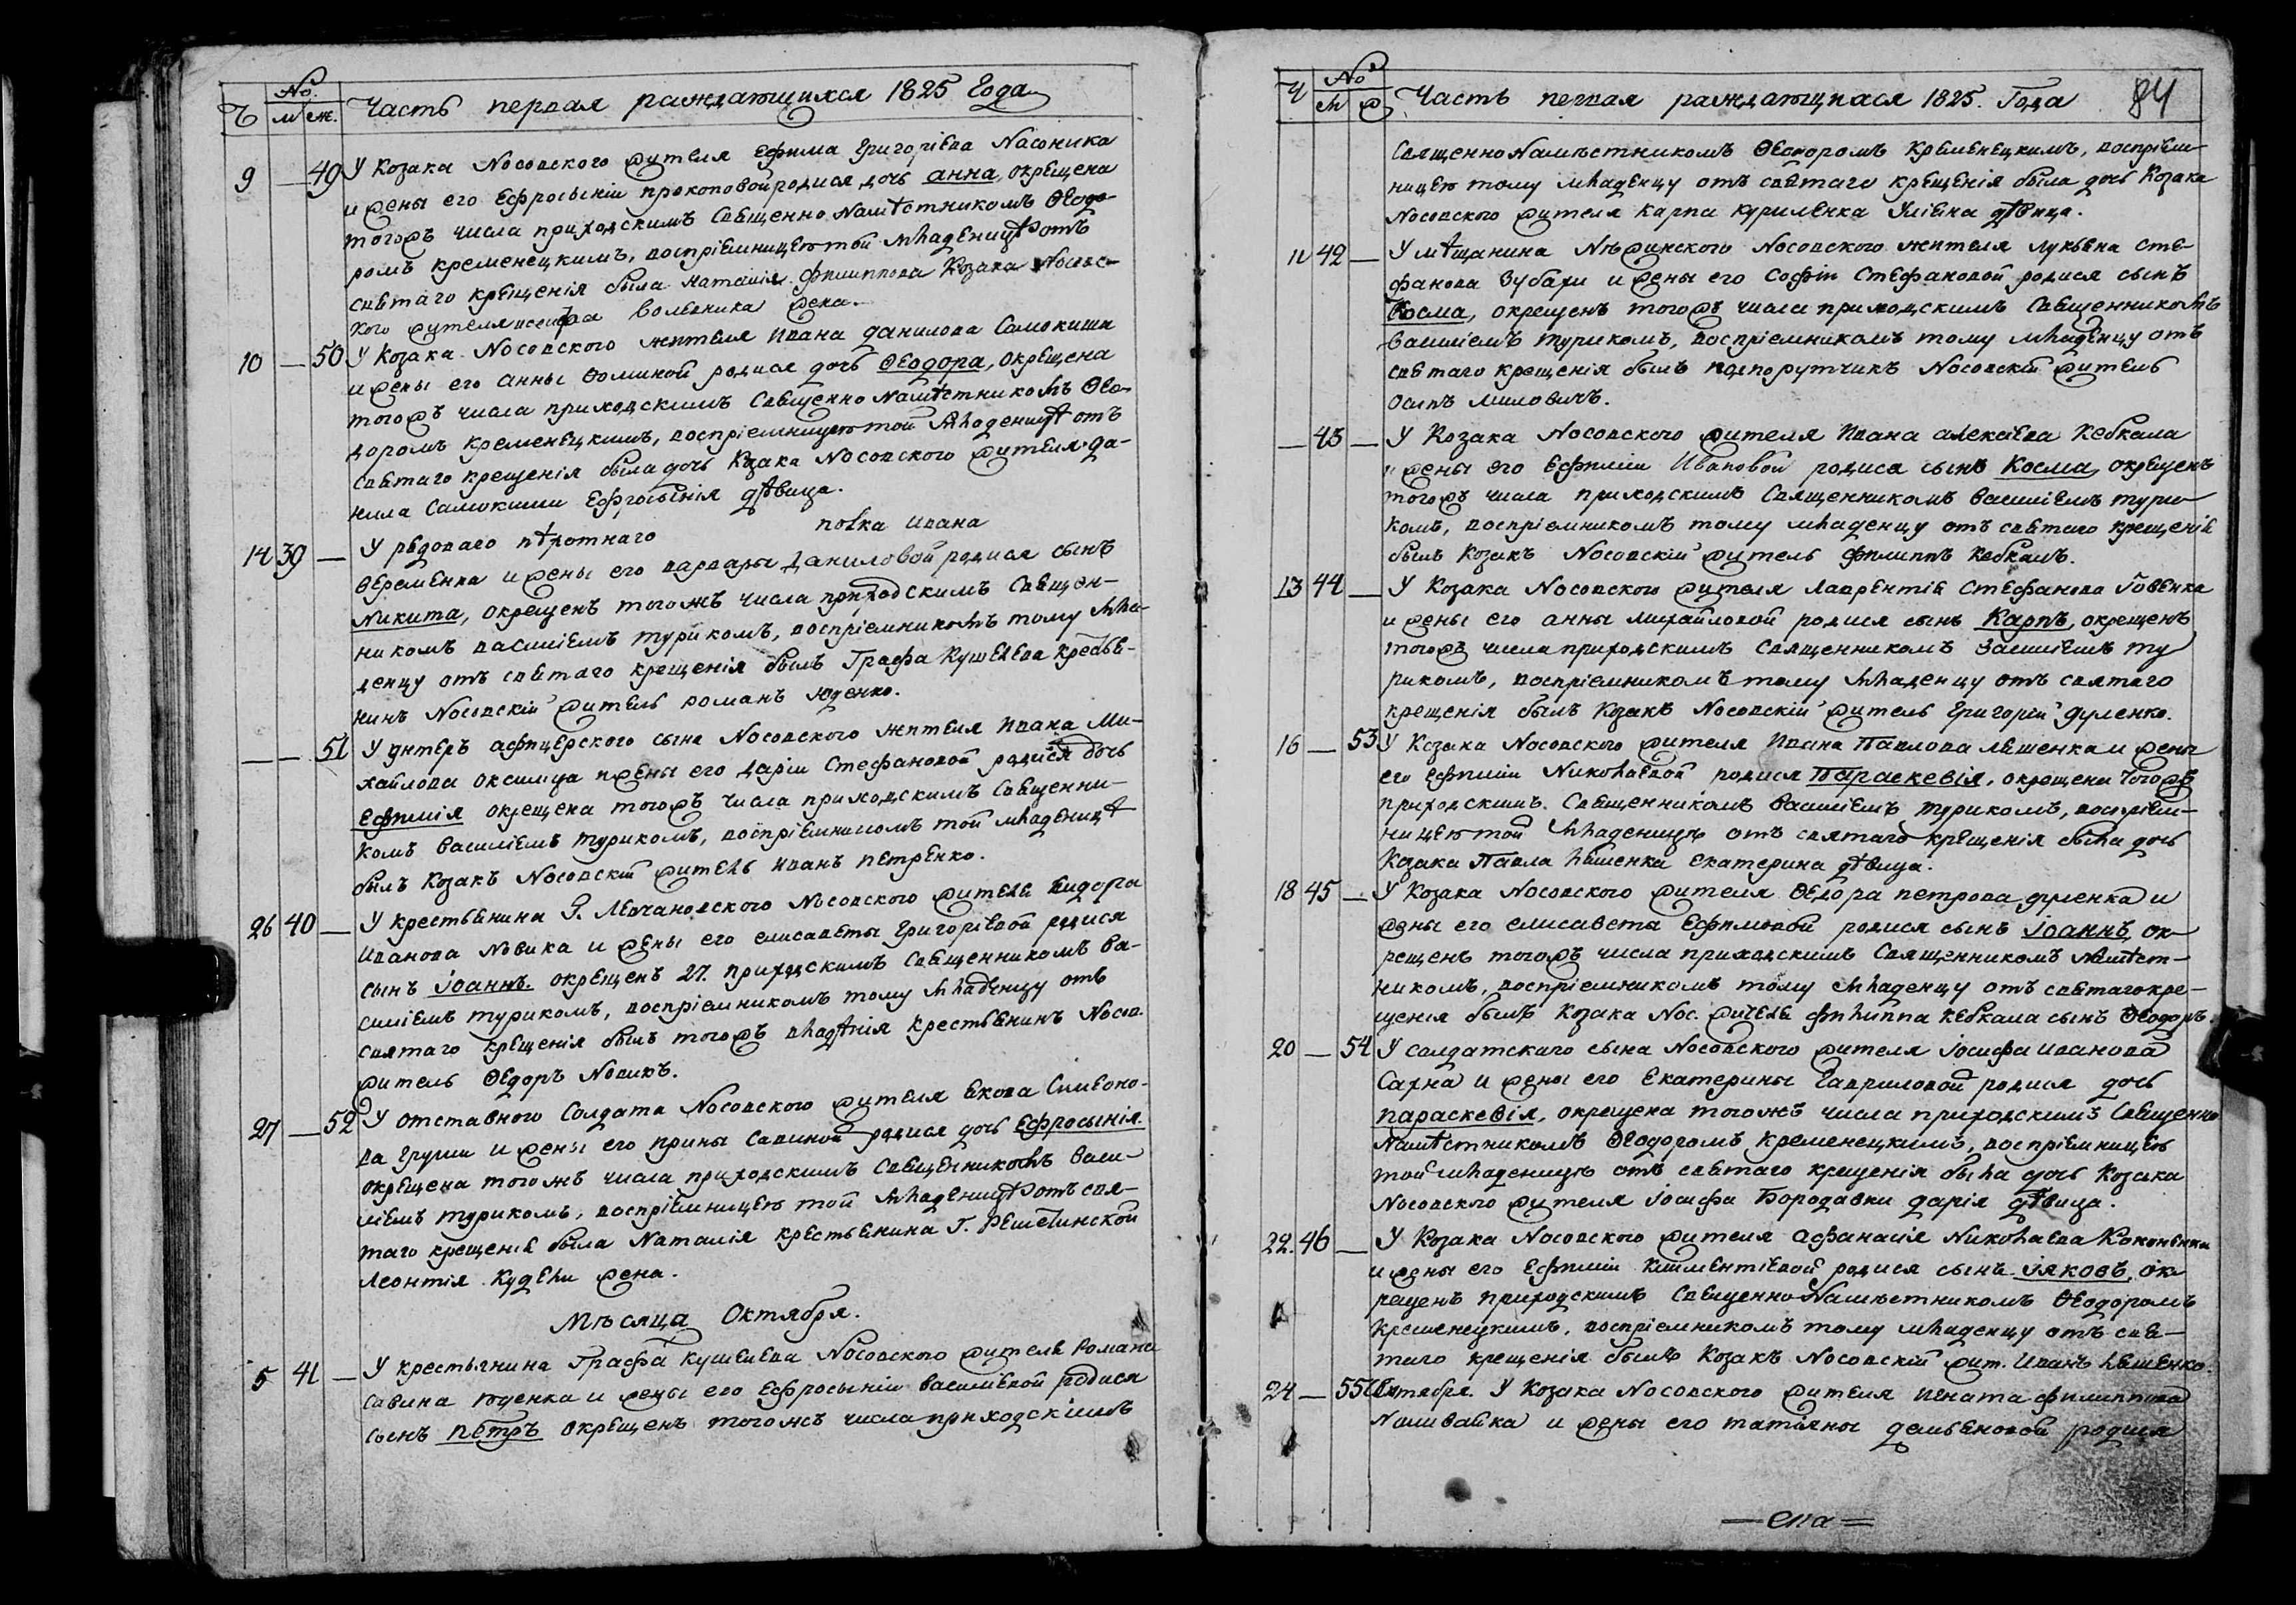 Ч
No.
м
ж.
Часть первая раждающихся 1825 Года
9 — 49 У Козака Носовского жителя Ефима Григоріева Насоника
и жены его Ефросыніи прокоповой родися дочь анна, окрещена
тогожъ числа приходскимъ Священно Намѣстникомъ Ѳеодо-
ромъ кременецкимъ, воспріемницею той младеницѣ отъ
святаго крещенія была наталія филиппова Козака Носовс-
кого жителя иосифа воленика жена.
10 — 50 У Козака Носовского жителя Ивана данилова Самокиши
и жены его анны Ѳоминой родися дочь Ѳеодора, окрещена
тогожъ числа приходскимъ Священно Намѣстникомъ Ѳео-
доромъ Кременецкимъ, воспріемницею той младеницѣ отъ
святаго крещенія была дочь Козака Носовского жителя да-
нила Самокиши Ефросынія дѣвица.
14 39 — У рядоваго пѣхотнаго полка Ивана
Ѳеременка и жены его варвары даниловой родися сынъ
Никита, окрещенъ тогожъ числа приходскимъ Священ-
никомъ василіемъ туриком, воспріемникомъ тому мла-
денцу отъ святаго крещенія былъ Графа Кушелева крестья-
нинъ Носовскій житель романъ юденко.
— — 51 У унтеръ афицерского сына Носовского жителя Ивана Ми-
хайлова Оксимца и жены его дарїи Стефановой родися дочь
Ефимія окрещена тогожъ числа приходскимъ Священни-
комъ василіемъ туриком, воспріемникомъ той младеницѣ
былъ козакъ Носовский житель иванъ петренко.
26 40 — У крестьянина Г. Левчановского Носовского жителя Сидора
Иванова Новика и жены его елисаветы григоріевой родися
сынъ іоаннъ. окрещенъ 27. приходскимъ Священникомъ ва-
силіемъ туриком, воспріемникомъ тому младенцу отъ
святаго крещенія былъ тогожъ владѣнія крестьянинъ Носов.
житель Ѳедоръ Новикъ.
27 — 52 У отставного Солдата Носовского жителя якова Симеоно-
ва груши и жены его ирины Савиной родися дочь Ефросынія.
окрещена тогожъ числа приходскимъ Священникомъ васи-
ліемъ туриком, воспріемницею той младеницѣ отъ свя-
таго крещенія была Наталія крестьянина Г. Решетинской
Леонтія Кудели жена.
Мѣсяца Октября.
5 41 — У крестьянина Графа Кушелева Носовского жителя Романа
Савина юденка и жены его Ефросыніи василіевой родися
сынъ Петръ окрещенъ тогожъ числа приходскимъ
Ч
No
м
ж
Часть первая раждающихся 1825. Года
84
Священно Намѣстникомъ Ѳеодоромъ Кременецкимъ, воспріем-
ницею тому младенцу отъ святаго крещенія была дочь Козака
Носовского жителя Карпа Куриленка Уліяна дѣвица.
11 42 — У мѣщанина Нѣжинского Носовского жителя лукьяна сте-
фанова Зубахи и жены его Софіи Стефановой родися сынъ
Косма, окрещенъ тогожъ числа приходскимъ Священникомъ
василіемъ туриком, воспріемникомъ тому младенцу отъ
святаго крещенія былъ подпорутчикъ Носовскій житель
Осипъ Миловичъ.
— 43 — У Козака Носовского жителя Ивана алексѣева Кебкала
и жены его Ефиміи Ивановой родися сынъ Косма, окрещенъ
тогожъ числа приходскимъ Священникомъ василіемъ тури-
комъ, воспріемникомъ тому младенцу отъ святаго крещенія
былъ Козакъ Носовскій житель филиппъ Кебкалъ.
13 44 — У Козака Носовского жителя лаврентія Стефанова Говенка
и жены его анны Михайловой родися сынъ Карпъ, окрещенъ
тогожъ числа приходскимъ Священникомъ Василіемъ ту
рикомъ, воспріемникомъ тому младенцу отъ святаго
крещенія былъ Козакъ Носовскій житель Григорій дуленко.
16 — 53 У Козака Носовского жителя Ивана Павлова Лешенка и жены
его Ефиміи Николаевой родися Параскевія, окрещена тогожъ
приходскимъ Священникомъ василіемъ туриком, воспріем-
ницею той младеницѣ отъ святаго крещенія была дочь
Козака Павла Лешенка Екатерина дѣвица.
18 45 — У Козака Носовского жителя Ѳедора петрова дуленка и
жены его елисаветы Ефимовой родися сынъ Іоаннъ, ок-
рещенъ тогожъ числа приходскимъ Священникомъ Намѣст-
никомъ, воспріемникомъ тому младенцу отъ святаго кре-
щенія былъ Козака Нос. жителя филиппа Кебкала сынъ Ѳеодоръ.
20 — 54 У солдатскаго сына Носовского жителя іосифа иванова
Сахна и жены его Екатерины Гавриловой родися дочь
параскевія, окрещена тогожъ числа приходскимъ Священно
Намѣстникомъ Ѳеодоромъ Кременецкимъ, воспріемницею
той младеницѣ отъ святаго крещенія была дочь Козака
Носовского жителя іосифа Бородавки дарія дѣвица.
22. 46 — У Козака Носовского жителя афанасія Николаева Кононенка
и жены его Ефиміи Климентіевой родися сынъ іяковъ, ок-
рещенъ приходскимъ Священно Намѣстникомъ Ѳеодоромъ
Кременецкимъ, воспріемникомъ тому младенцу отъ свя-
таго крещенія былъ Козакъ Носовскій жит. Иванъ Лешенко.
24 — 55 Октября. У Козака Носовского жителя игната филиппова
Наливайка и жены его татіяны демьяновой родися
— ена =